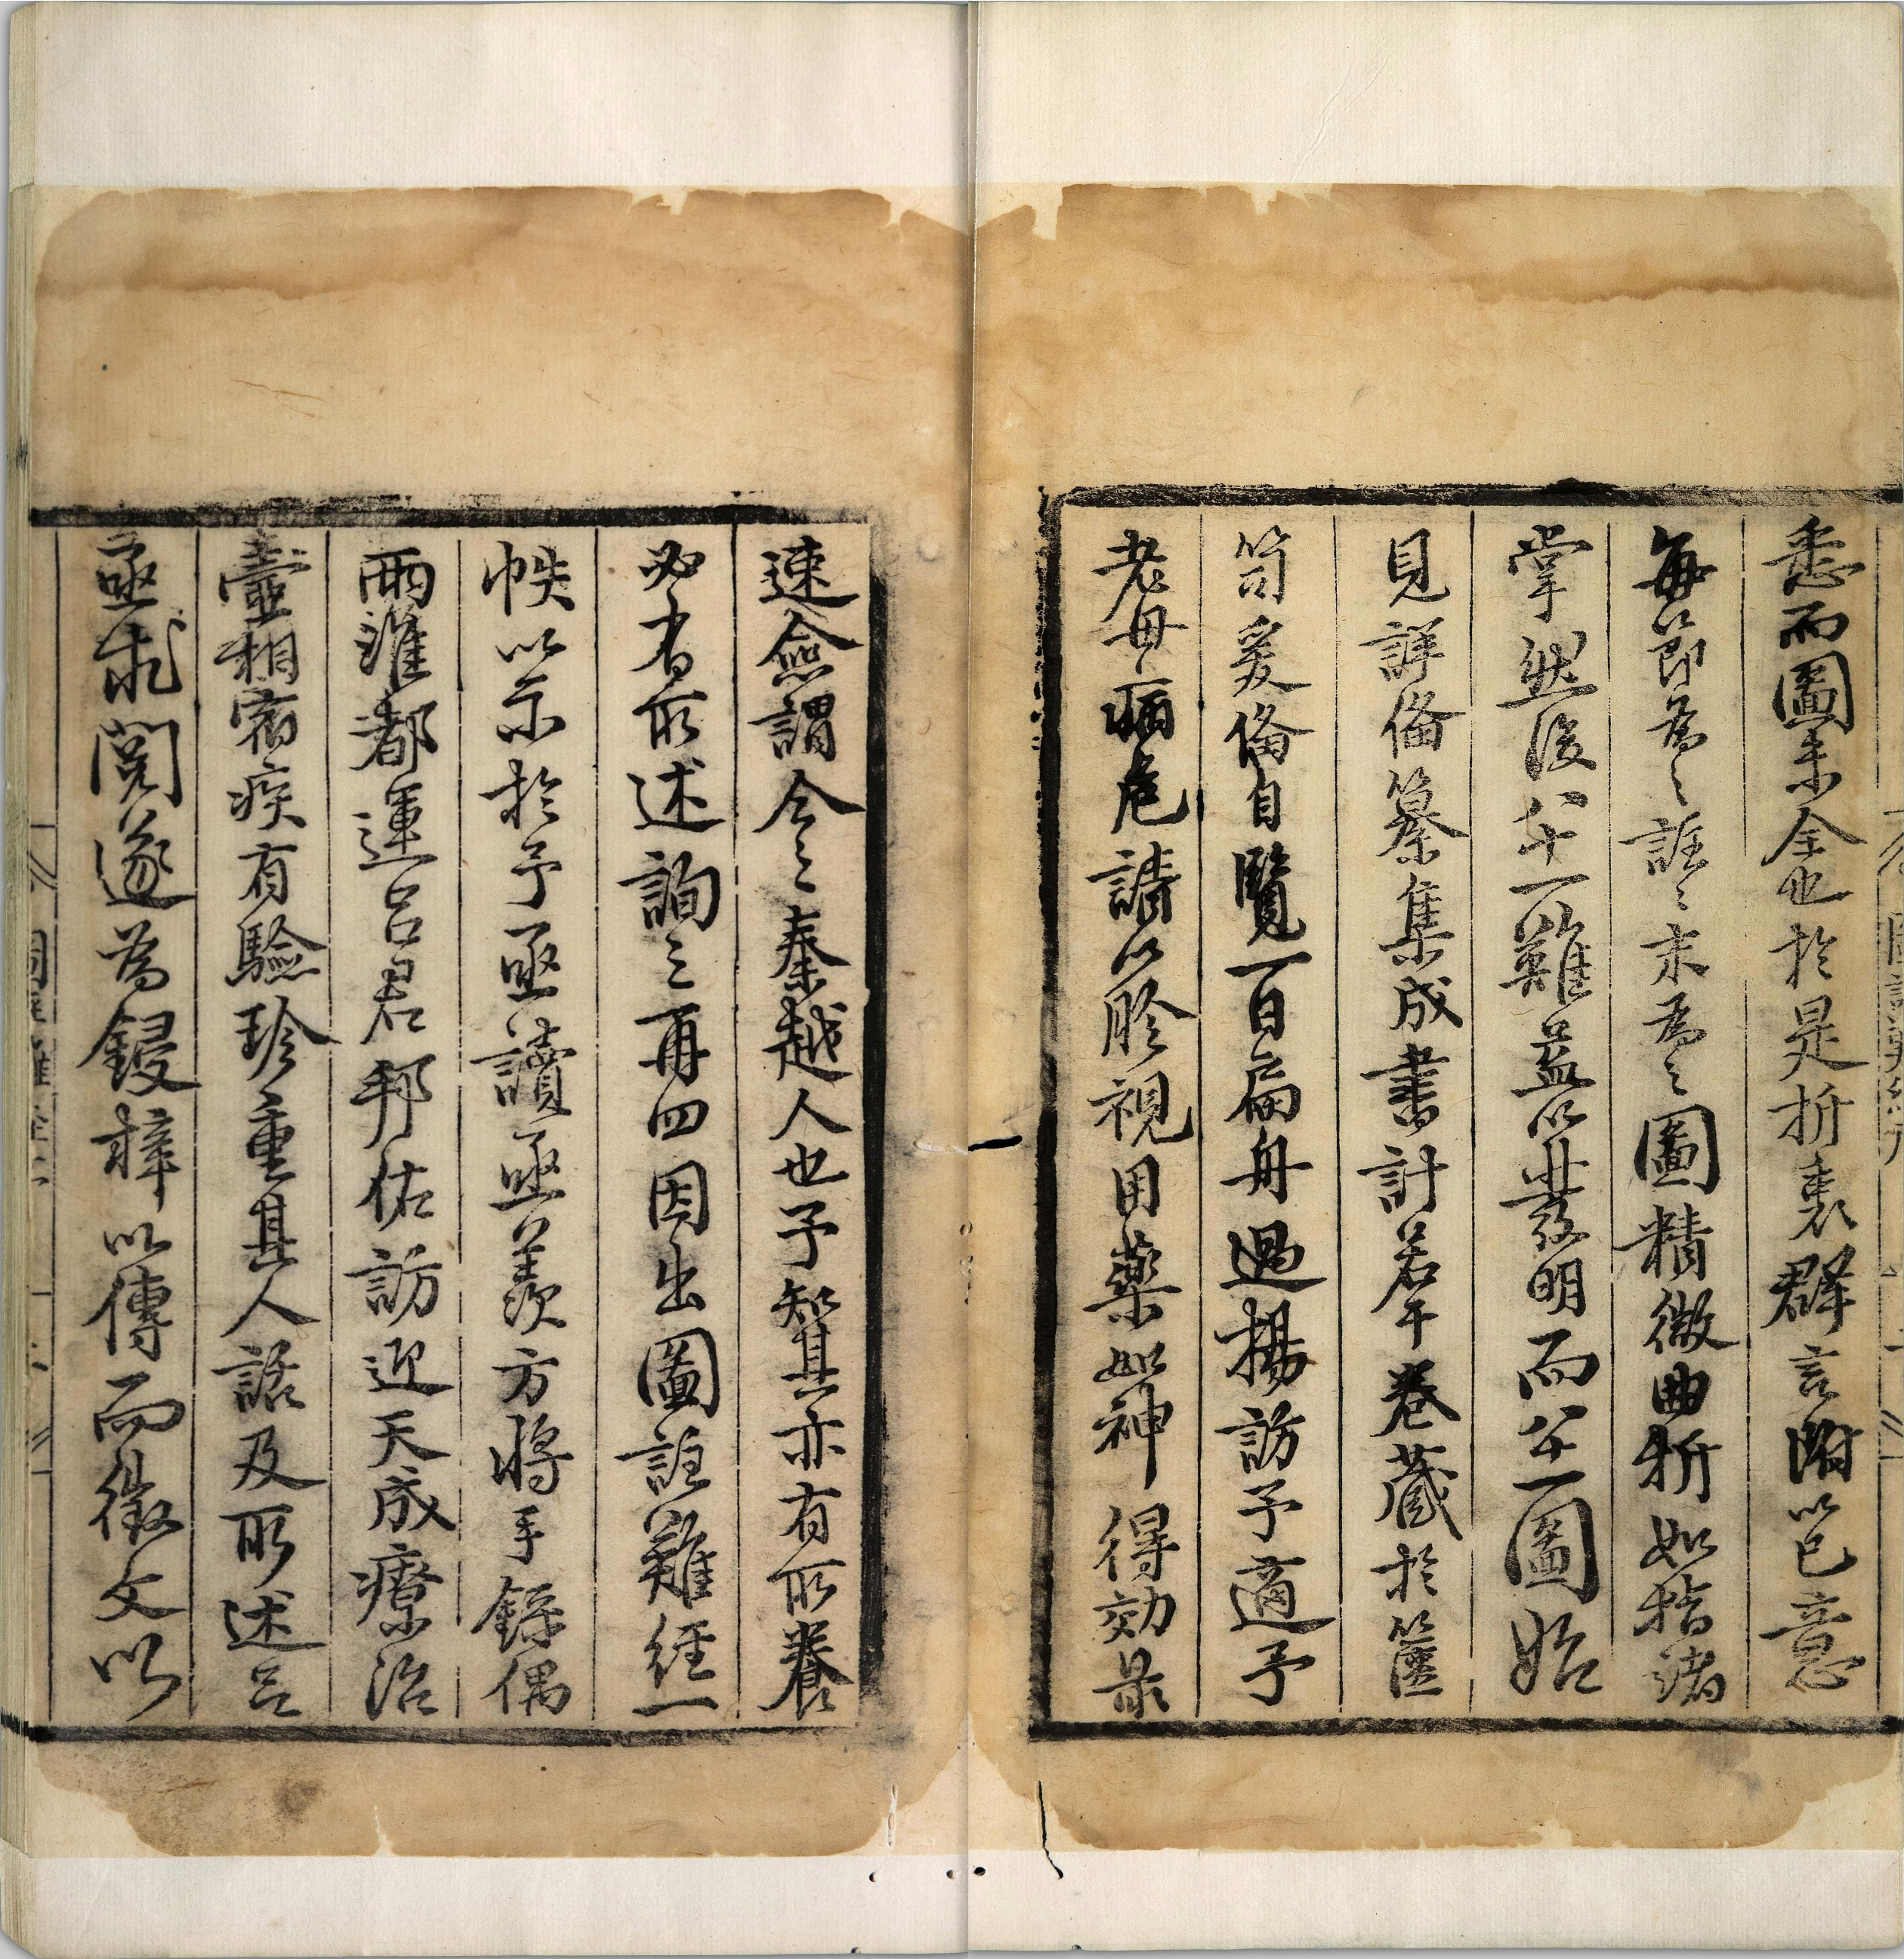 悉而圖未全也於是折衷群言附以己意
每節爲之註註末爲之圖精微曲折如指諸
掌然後八十一難益以發明而八十一圖始
見詳俻纂集成書計若干卷藏於篋
笥爰俻自覽一日扁舟過揚訪予適予
老母病危請以胗視用藥如神得効最
速僉謂今之秦越人也予知其亦有所養
必有所述詢之再四因出圖註難經一
帙以示於予亟讀亟羨方將手錄偶
兩淮都運呂君邦佑訪迎天成療治
壼相宿疾有驗珍重其人話及所述呂
亟求閱遂爲鋟梓以傳而徵文以